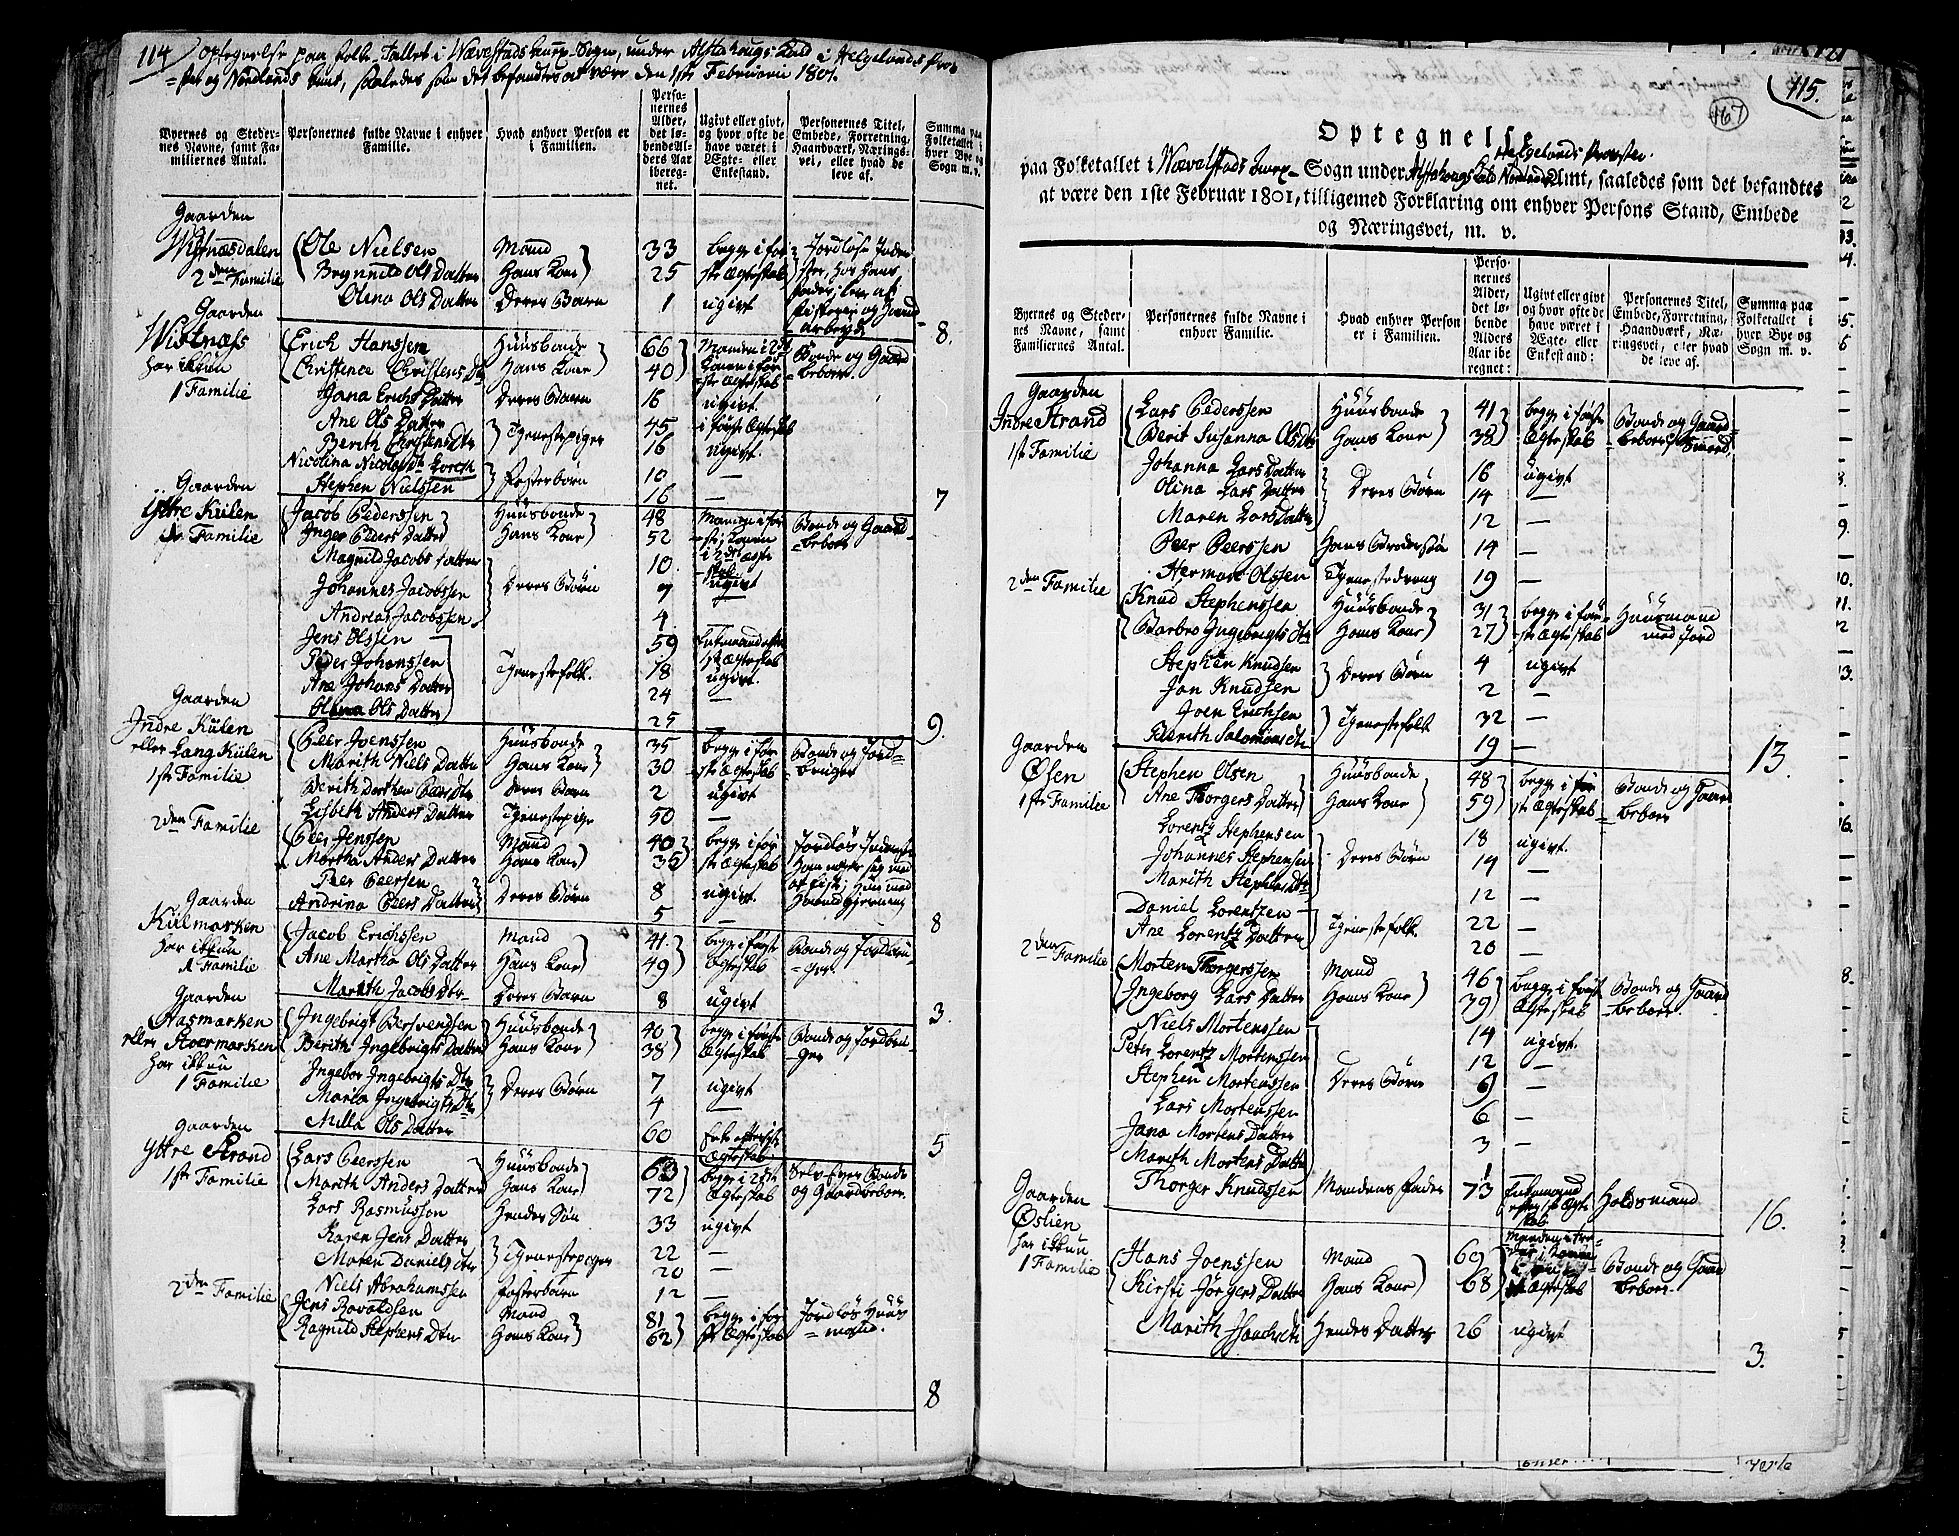 114
Optegnelse paa Folke-Tallet i Nævelstads Sogn, under Alstahougs Kald i Helgelands Pro=
=stie og Nordlands Amt, saaledes som det befandtes at være den 1ste Februarii 1801.
Byernes og Stedernes Navne, samt Familiernes Antal.
Personernes fulde Navne i enhver Familie.
Hvad enhver Person er i Familien.
Personernes Alder, det løbende Alders Aar iberegnet.
Ugivt eller givt, og hvor ofte de have været i Ægte- eller Enkestand.
Personernes Titel, Embede, Forretning, Haandværk, Næringsvei, eller hvad de leve af.
Summa paa Folketallet i hver Bye og Sogn m. v.
Gaarden
2den Familie
Ole Nielsen Mand 33 begge i før=
Brynnild Ols Datter Hans Kone 25 ste Ægteskab
Olina Ols Datter Deres Barn 1 ugivt
8.
Gaarden
Wistnæss
har ikkun
1 Familie
Erich Hanssen Huusbonde 66 Bonde og Gaard
Christence Christens Dtr Hans Kone 40 =beboer.
Jana Erichs Datter Deres Barn 16 ugivt
Ane Ols Datter Tjenestepiger 45 i første Ægteskab
Berith Christens Dtr 16 ugivt.
Nicolina Nicolai Dtr Lorch Fosterbørn 10 —
Stephen Nielssen 16 —
7
Gaarden
Yttre Kulen
Familie
Jacob Pederssen Huusbonde 48 Bonde og Gaard
Inger Peders Datter Hans Kone 52 =beboer
Magnild Jacobs Datter 10
Johannes Jacobssen Deres Børn 7 ugivt
Andreas Jacobssen 4
Jens Olssen 59
Peder Johanssen Tjenestefolk. 18 ugivt.
Ane Johans Datter 24 —
Olina Ols Datter 25 —
9.
Gaarden
Indre Kulen
eller Lang Kulen
1ste Familie
Peer Joenssen Huusbonde 35 begge i før= Bonde og Jord=
Marith Niels Datter Hans Kone 30 =ste Ægteskab =bruger
Berith Dorthea Peers Dtr Deres Barn 2 ugivt
Lisbeth Anders Datter Tjenestepige 50 —
2den Familie
Peer Jenssen Mand 40 begge i før=
Martha Anders Datter Hans Kone 35 ste Ægteskab
Peer Peersen Deres Børn 8 ugivt.
Andrina Peers Datter 5 —
8
Gaarden
Kulmarken
har ikkun
1 Familie
Jacob Erichssen Mand 41. begge i første Bonde og Jordbru=
Ane Martha Ols Datter Hans Kone 49 Ægteskab =ger.
Marith Jacobs Dtr Deres Barn 8 ugivt
3.
Gaarden
Aasmarken
eller Stoermarken
har ikkun
1 Familie
Ingebrigt Bersvendsen Huusbonde 40 begge i første Bonde og Jordbru=
Berith Ingebrigts Datter Hans Kone 38 Ægteskab =ger
Ingebor Ingebrigts Dtr Deres Børn 7 ugivt
Maria Ingebrigts Dtr 4 —
Milla Ols Datter 60 Enke efter 1ste Ægteskab.
5
Gaarden
Yttre Strand
1ste Familie
Lars Peerssen Huusbonde 63 begge i 2det Selv Eyer Bonde
Marith Anders Datter Hans Kone 72 Ægteskab og Gaardbeboer.
Lars Rasmussøn Hendes Søn 33 ugivt
Karen Jens Datter Tjenestepiger 22 —
Maren Daniels Dtr 20 —
Niels Abrahamssen Fosterbarn 12 —
2den Familie
Jens Mand 81 begge i før= Jordløs Huus
Ragnild Stephens Dtr Hans Kone 62 ste Ægteskab =mand.
8
121
115.
167
Optegnelse
paa Folketallet i Nævelstads Sogn under Alstahougs Kald Helgelands Provstie Nordlands Amt, saaledes som det befandtes
at være den 1ste Februar 1801, tilligemed Forklaring om enhver Persons Stand, Embede
og Næringsvei, m. v.
Byernes og Stedernes Navne, samt Familiernes Antal.
Personernes fulde Navne i enhver Familie.
Hvad enhver Person er i Familien.
Personernes Alder, det løbende Alders Aar iberegnet:
Ugivt eller givt og hvor ofte de have været i Ægte- eller Enkestand:
Personernes Titel, Embede, Forretning, Haandværk, Næringsvei, eller hvad de leve af.
Summa paa Folketallet i hver Bye og Sogn m. v.
Gaarden
Indre Strand
1ste Familie
Lars Pederssen Huusbonde 41 begge i første Bonde og Gaard
Berit Susanna Ols Dtr Hans Kone 38 Ægteskab
Johanna Lars Datter 16 ugivt
Olina Lars Datter Deres Børn 14 —
Maren Lars Datter 12 —
Peer Peerssen Hans Brodersøn 14 —
Herman Olssen Tjenestedreng 19 —
2den Familie
Knud Stephenssen Huusbonde 31 begge i før= Huusmand
Barbro Ingebrigts Dtr Hans Kone 27 ste Ægteskab med Jord
Stephen Knudsen Deres Børn 4 ugivt
Jan Knudsen 2 —
Joen Erichsen Tjenestefolk 32 —
Berith Salomons Dtr 19 —
13.
Gaarden
Øsen
1ste Familie
Stephen Olsen Huusbonde 48 begge i før= Bonde og Gaard
Ane Thorgers Datter Hans Kone 59 ste Ægteskab =beboer
Lorentz Stephensen 18 ugivt.
Johannes Stephensen Deres Børn 14 —
Marith Stephens Dtr 12 —
Daniel Lorentzen Tjenestefolk. 22 —
Ane Lorentz Datter 20 —
2den Familie
Morten Thorgerssen Mand 46 begge i første Bonde og Gaard
Ingeborg Lars Datter Hans Kone 39 Ægteskab =beboer.
Niels Mortenssen 14 ugivt.
Peter Lorentz Mortenssen 12 —
Stephen Mortenssen Deres Børn 9 —
Lars Mortenssen 6 —
Jana Mortens Datter 3 —
Marith Mortens Datter 1
Thorger Knudssen Mandens Fader 73 Enkemand efter 1ste Ægteskab
16.
Gaarden
Øslien
har ikkun
1 Familie
Hans Joenssen Mand 69 Bonde og Gaard
Kirsti Jørgens Datter Hans Kone 68 Ægteskab =beboer.
Marith Isachs Dtr Hendes Datter 26 ugivt
3.